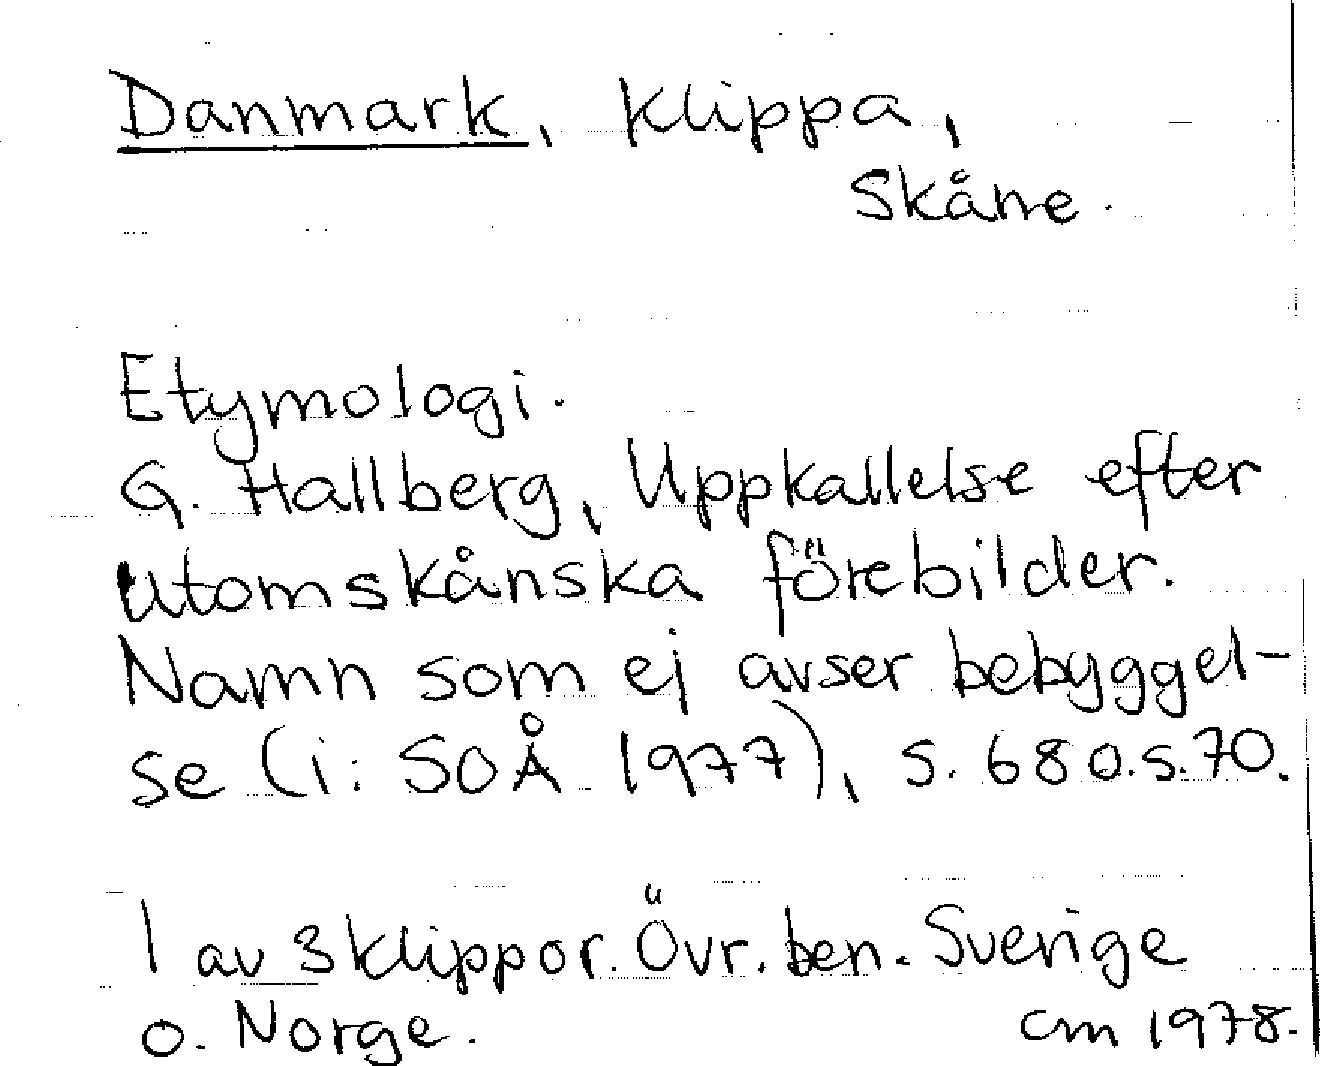 Danmark, klippa,
Skåne.
Etymologi.
G. Hallberg, Uppkallelse efter
utomskånska förebilder.
Namn som ej avser bebyggel-
se (i: SOÅ 1977), s. 68 o.s.70.
1 av 3 klippor. Övr. ben. Sverige
o. Norge.
cm 1978.